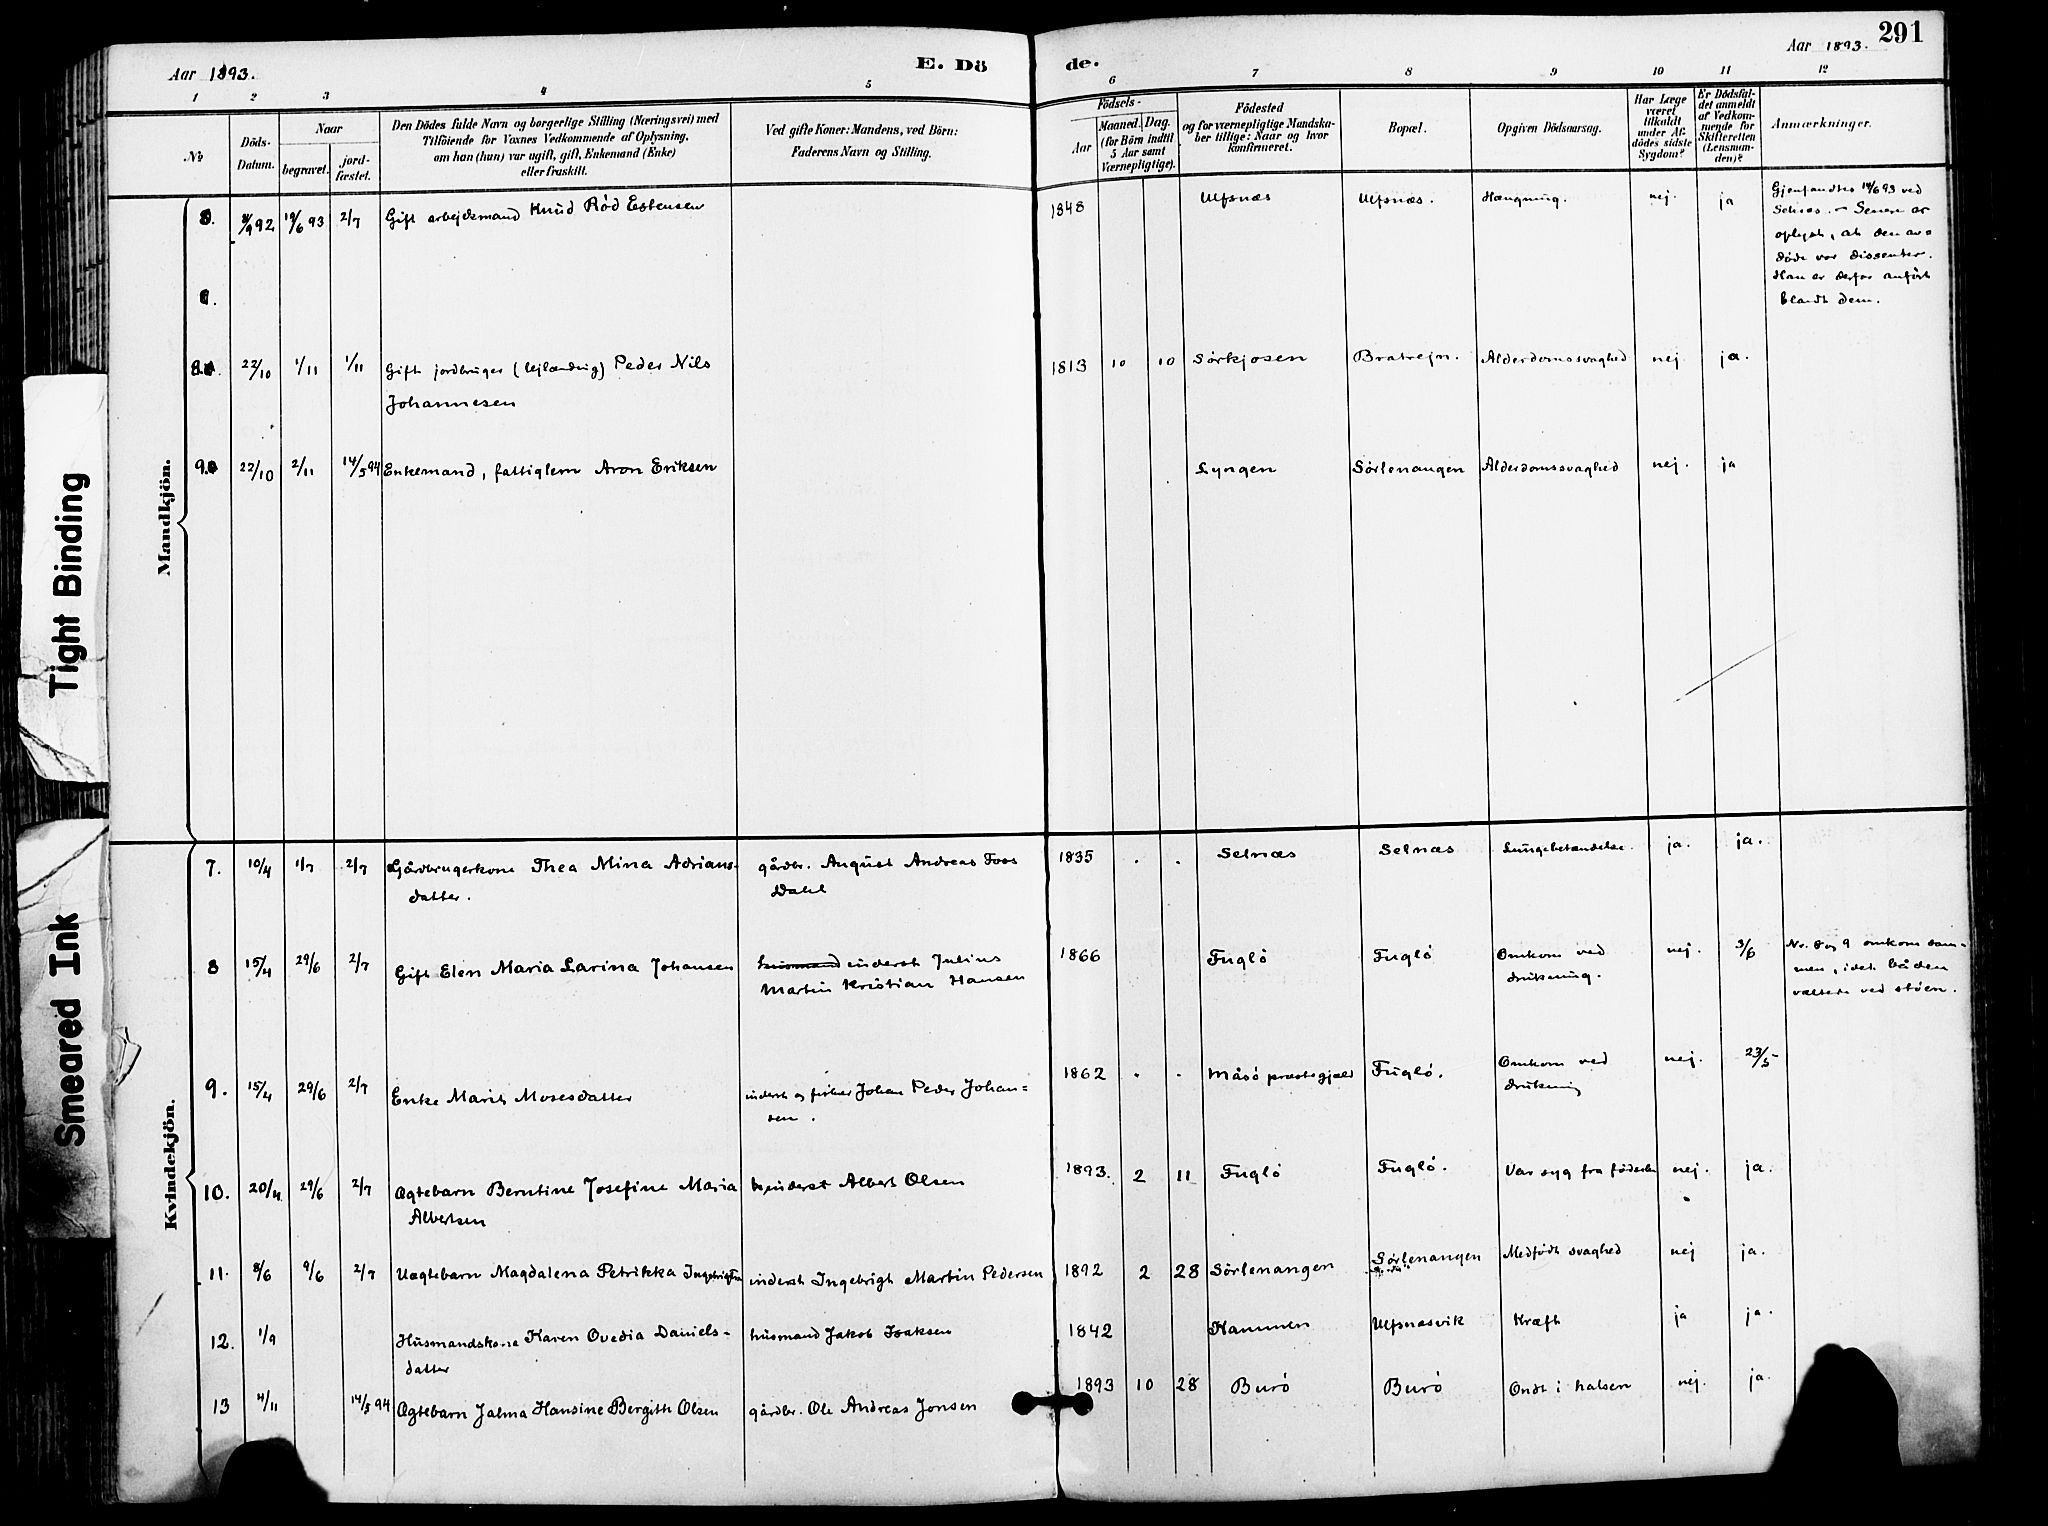 Aar 1893.
E. Dö
de.
Aar 1893.
291
1 2 3 4 5 6 7 8 9 10 11 12
No
Döds-Datum.
Naar
begravet.
jord-fæstet.
Den Dödes fulde Navn og borgerlige Stilling (Næringsvei) med
Tilföiende for Voxnes Vedkommende af Oplysning,
om han (hun) var ugift, gift, Enkemand (Enke)
eller fraskilt.
Ved gifte Koner: Mandens, ved Börn:
Faderens Navn og Stilling.
Födsels-
Aar
Maaned. Dag.
(for Börn indtil
5 Aar samt
Værnepligtige).
Födested
og for værnepligtige Mandska-
ber tillige: Naar og hvor
konfirmeret.
Bopæl.
Opgiven Dödsaarsag.
Har Læge
været
tilkaldt
under Af-
dödes sidste
Sygdom?
Er Dödsfal-
det anmeldt
af Vedkom-
mende for
Skifteretten
(Lensman-
den)?
Anmærkninger.
Mandkjön.
8/9 92 19/6 93 2/7 Gift arbejdsmand Knud Rød Estensen 1848 Ulfsnæs Ulfsnæs. Hængning. nej. ja
Gjenfandtes 14/6 93 ved
Selnæs. - Senere er
oplyst, at den av=
døde var dissenter.
Han er derfor anført
blandt dem.
8. 22/10 1/11 1/11 Gift jordbruger (lejlænding) Peder Nils
Johannesen 1813 10 10 Sørkjosen Bratrejn. Alderdomssvaghed nej ja.
9. 22/10 2/11 14/5 94 Enkemand, fattiglem Aron Eriksen Lyngen Sørlenangen Alderdomssvaghed nej. ja
Kvindekjön.
7. 10/4 1/7 2/7 Gårdbrugerkone Thea Mina Adrians-
datter. gårdbr. August Andreas Foss
Dahl 1835 . . Selnæs Selnæs Lungebetændelse. ja. ja.
8 15/4 29/6 2/7 Gift Elen Maria Larina Johansen husmand inderst Julius
Martin Kristian Hansen 1866 Fuglø Fuglø Omkom ved
drukning. nej. 3/6
Nr. 8 og 9 omkom sam-
men, idet båden
væltede ved støen.
9. 15/4 29/6 2/7 Enke Marit Mosesdatter inderst og fisker Johan Peder Johan=
sen. 1862 . . Måsø præstegjæld Fuglø. Omkom ved
drukning nej. 23/5
10. 20/4 29/6 2/7 Ægtebarn Berntine Josefine Maria
Albertsen inderst Albert Olsen 1893. 2 11 Fuglø Fuglø. Var syg fra fødselen nej. ja.
11. 8/6 9/6 2/7 Uægtebarn Magdalena Petrikka inderst Ingebrigt Martin Pedersen 1892 2 28 Sørlenangen Sørlenangen Medfødt svaghed nej ja.
12. 1/9 Husmandskone Karen Ovedia Daniels-
datter husmand Jakob Isaksen 1842 Kammen Ulfsnæsvik Kræft ja ja.
13 4/11 14/5 94 Ægtebarn Jalma Hansine Bergitte Olsen gårdbr. Ole Andreas Jonsen 1893 10 28 Burø Burø Ondt i halsen nej. ja.
Tight Binding
Smeared Ink